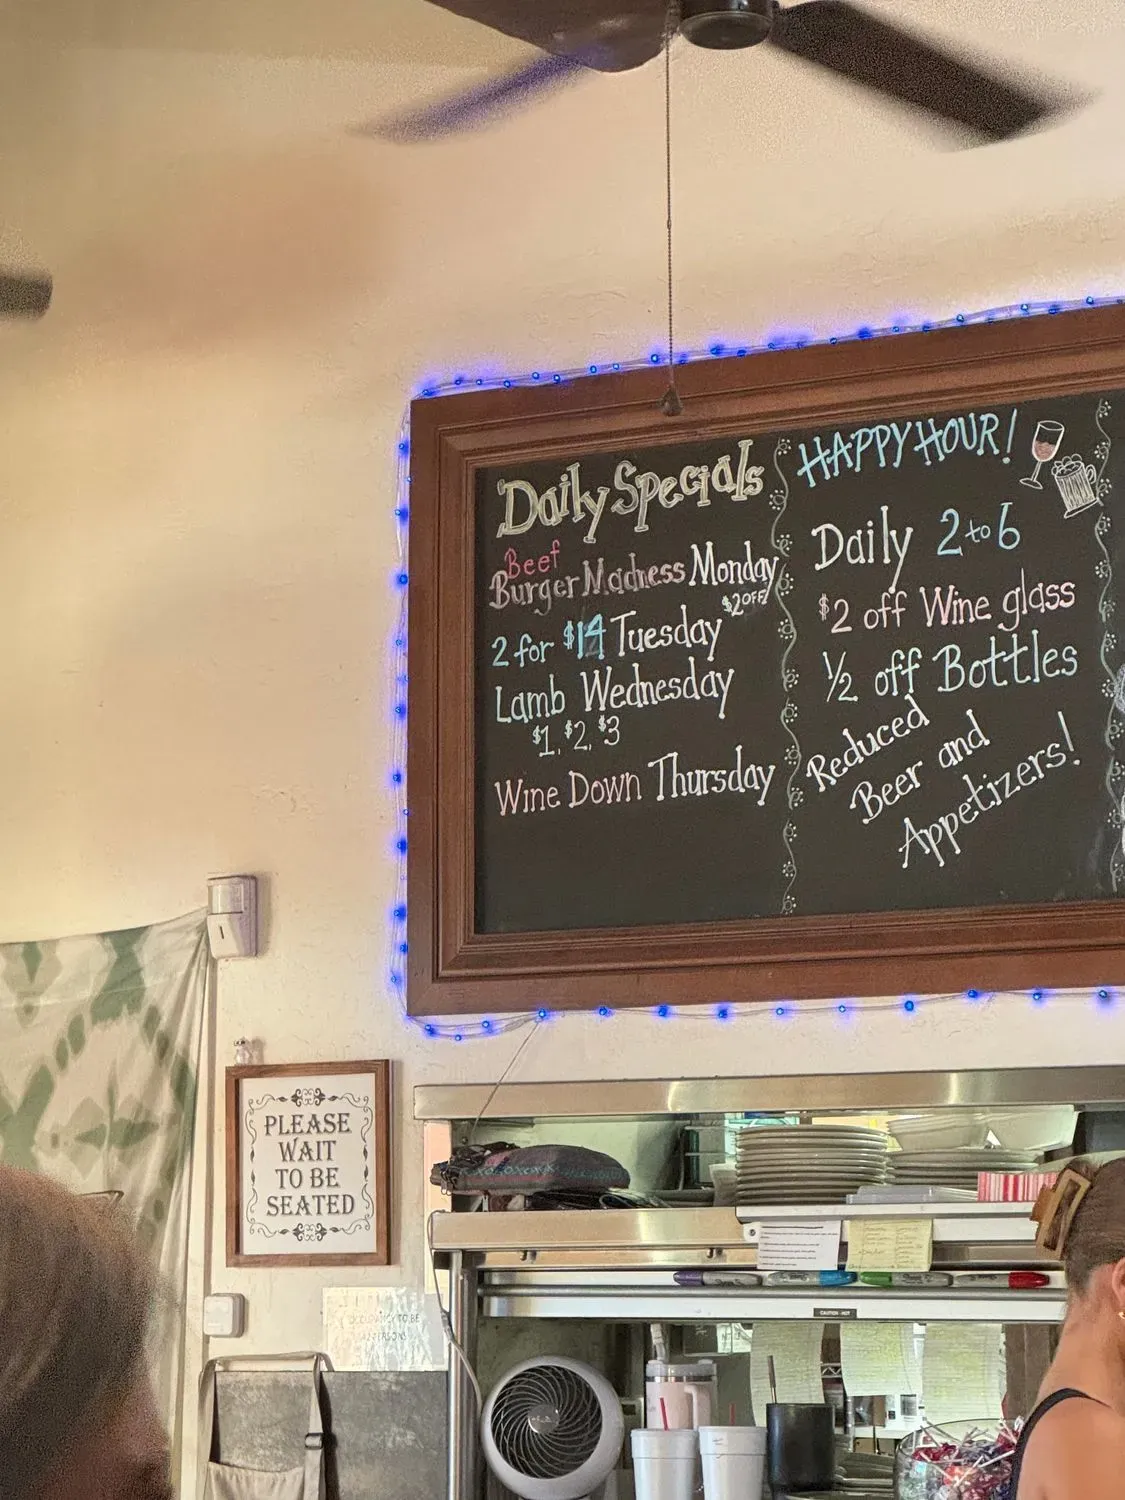 Daily Specials
Beef
Burger Madness Monday
$2 OFF
2 for $14 Tuesday
Lamb Wednesday
$1, $2, $3
Wine Down Thursday
HAPPY HOUR!
Daily 2 to 6
$2 off Wine glass
1/2 off Bottles
Reduced
Beer and
Appetizers!
PLEASE
WAIT
TO BE
SEATED
OCCUPANCY TO BE
PERSONS
CAUTION - HOT